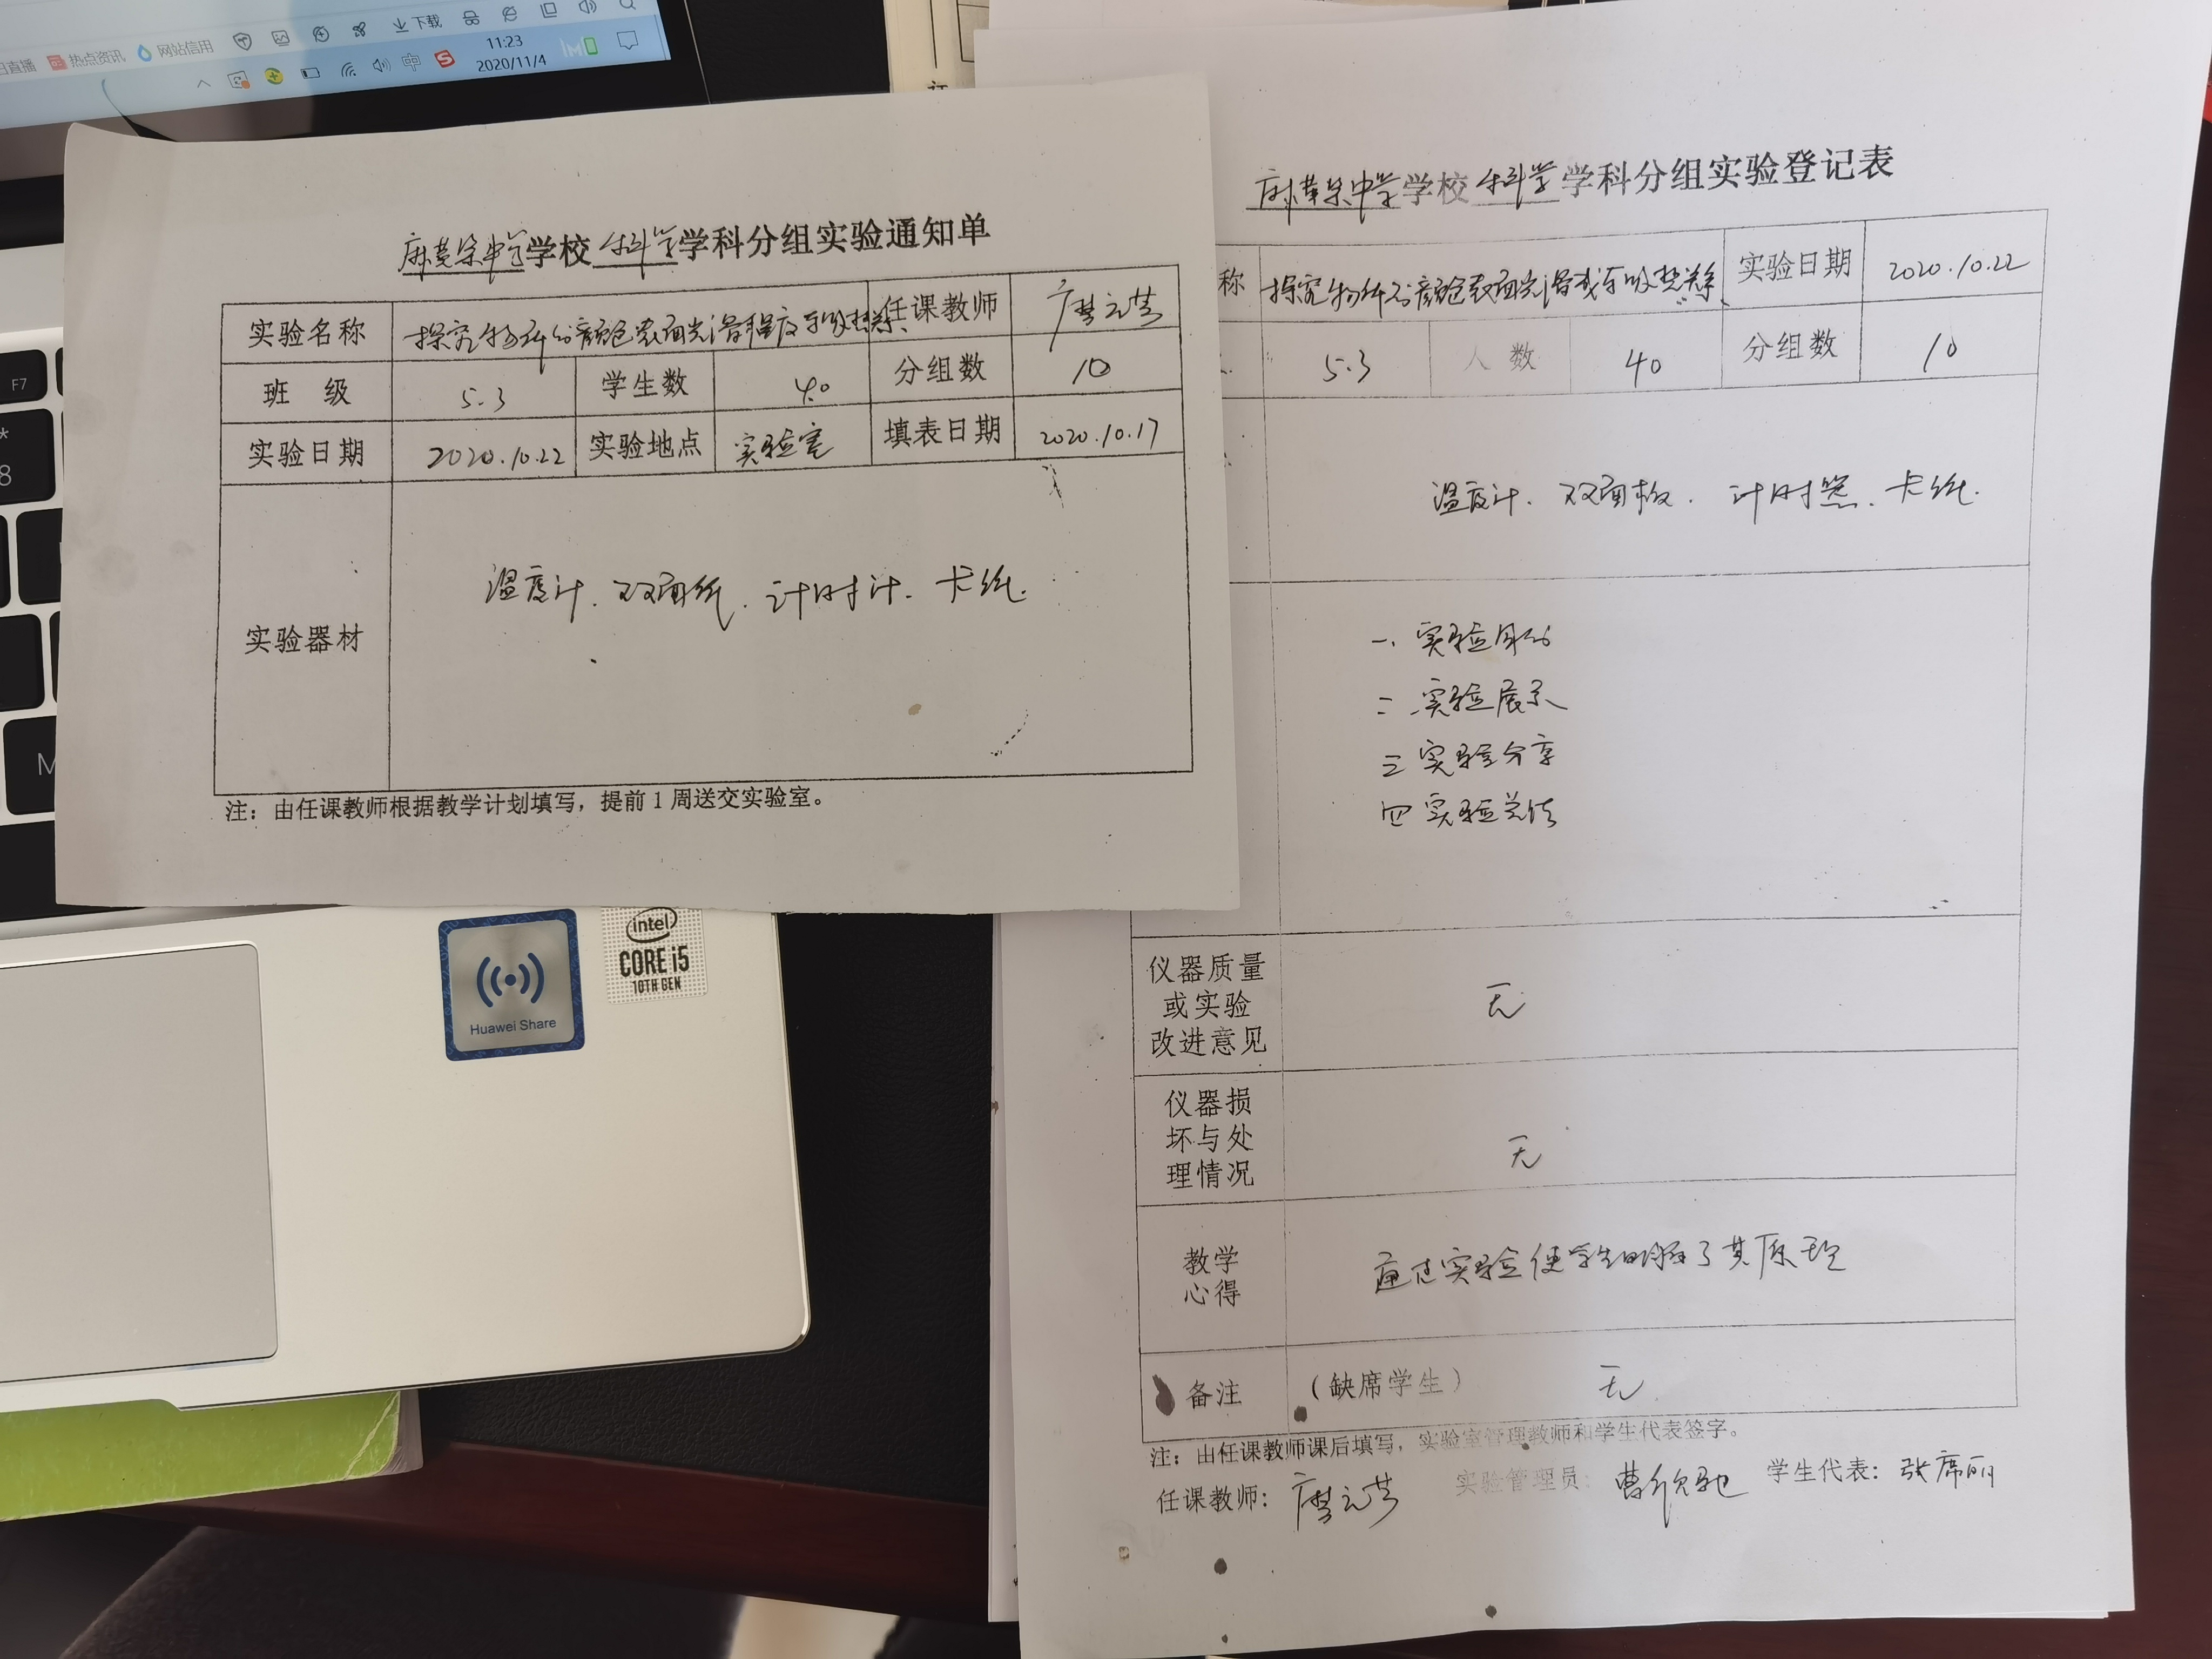 日直播 热点资讯 网站信用 下载
中 11:23
2020/11/4
F7
*
8
M
学校科学学科分组实验通知单
实验名称 探究物体的颜色表面光滑程度与吸热关系 任课教师
班 级 5.3 学生数 40 分组数 10
实验日期 2020.10.22 实验地点 实验室 填表日期 2020.10.17
实验器材 温度计、双面纸、计时计、卡纸.
注：由任课教师根据教学计划填写，提前1周送交实验室。
intel
CORE i5
10TH GEN
Huawei Share
学校科学学科分组实验登记表
称 探究物体的颜色表面光滑或与吸热关系 实验日期 2020.10.22
5.3 人数 40 分组数 10
温度计、双面板、计时器、卡纸.
一、实验
二、实验展示
三 实验分享
四 实验总结
仪器质量
或实验
改进意见 无
仪器损
坏与处
理情况 无
教学
心得 通过实验使学生明了其原理
备注 （缺席学生） 无
注：由任课教师课后填写，实验室管理教师和学生代表签字。
任课教师： 实验管理员： 学生代表：张席丽